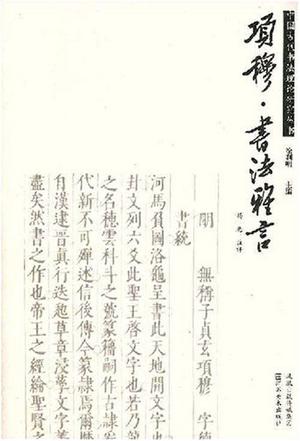 中国古代书法理论研究丛书
項穆·書法雅言
徐利明 主编
杨亮 注评
明 無稱子貞玄項穆 字
書統
河馬負圖洛龜呈書此天地開文字也
卦文列六爻此聖王啓文字也若乃
之名穗雲科斗之號篆籀嗣作古隸
代新不可殫述信後傳今篆隸焉爾
自漢逮晉真行迭起草章浸孳文字菁
盡矣然書之作也帝王之經綸聖賢之
凤凰出版传媒集团
江苏美术出版社